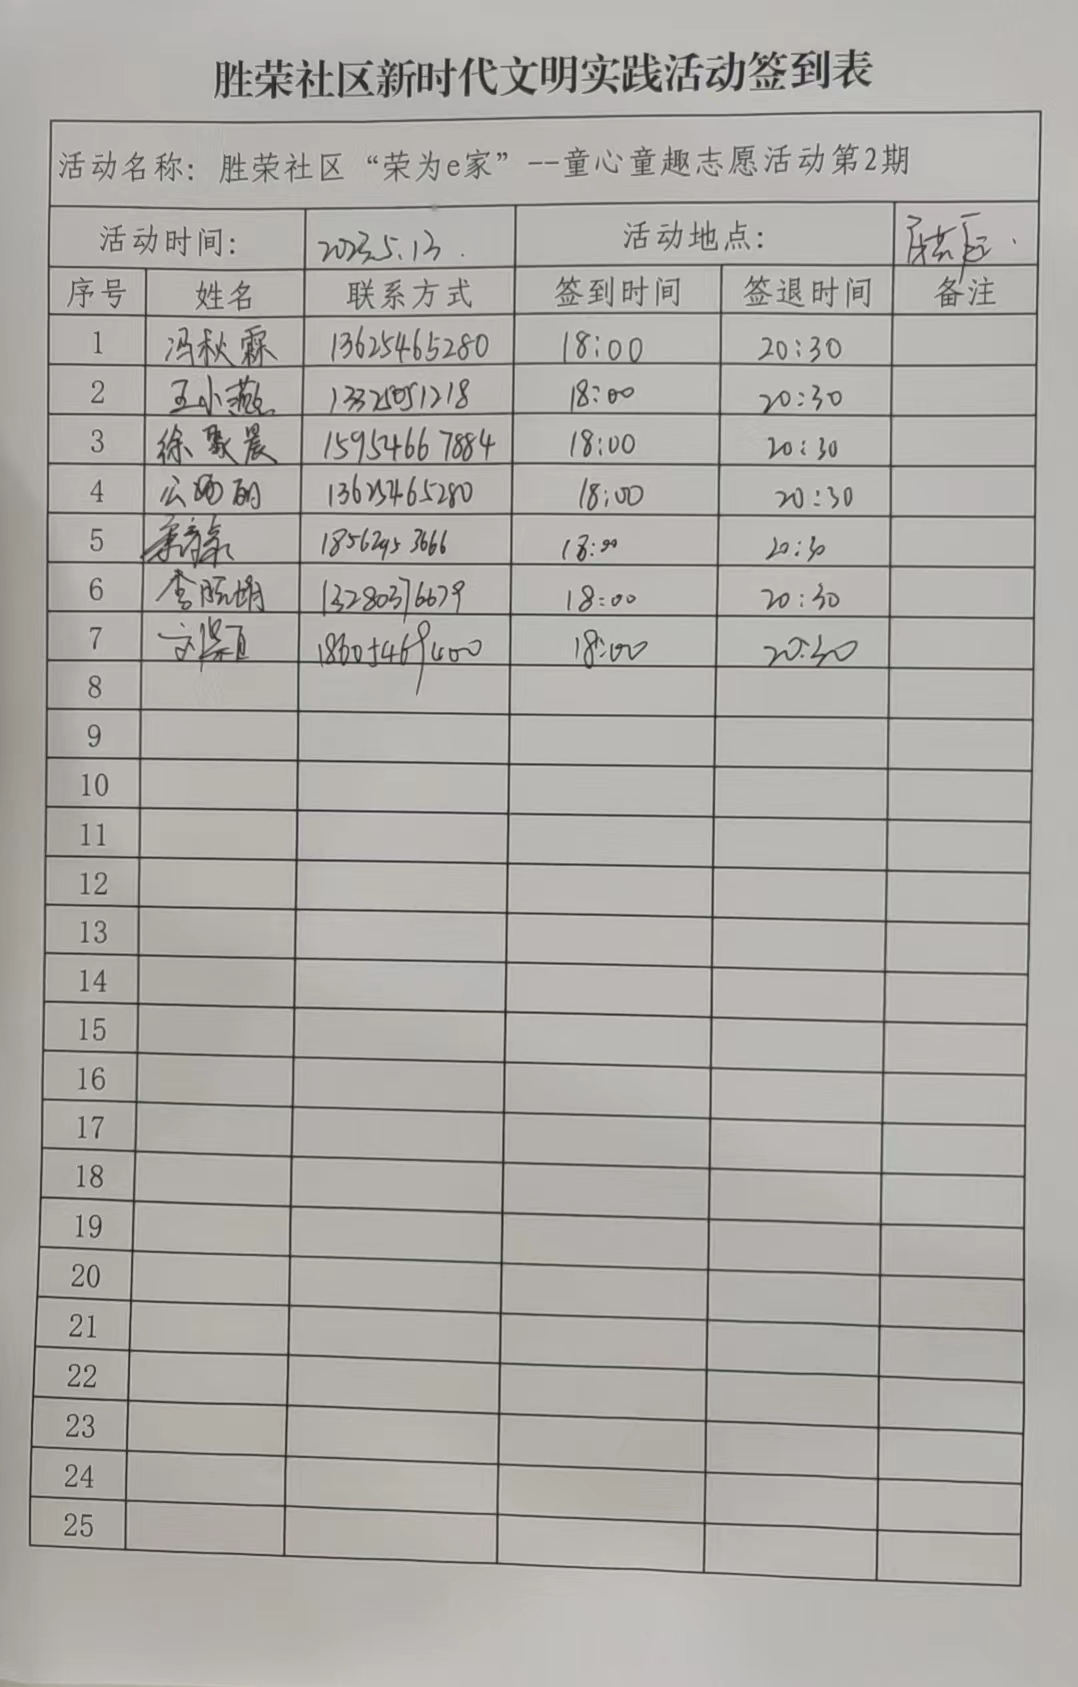 胜荣社区新时代文明实践活动签到表
活动名称：胜荣社区“荣为e家”--童心童趣志愿活动第2期
活动时间： 2023.5.13. 活动地点：
序号 姓名 联系方式 签到时间 签退时间 备注
1 冯秋霖 13625465280 18:00 20:30
2 王小燕 13325051218 18:00 20:30
3 徐聚晨 15954667884 18:00 20:30
4 13625465280 18:00 20:30
5 18562953666 18:00 20:30
6 李 13280376679 18:00 20:30
7 18605469400 18:00 20:30
8
9
10
11
12
13
14
15
16
17
18
19
20
21
22
23
24
25